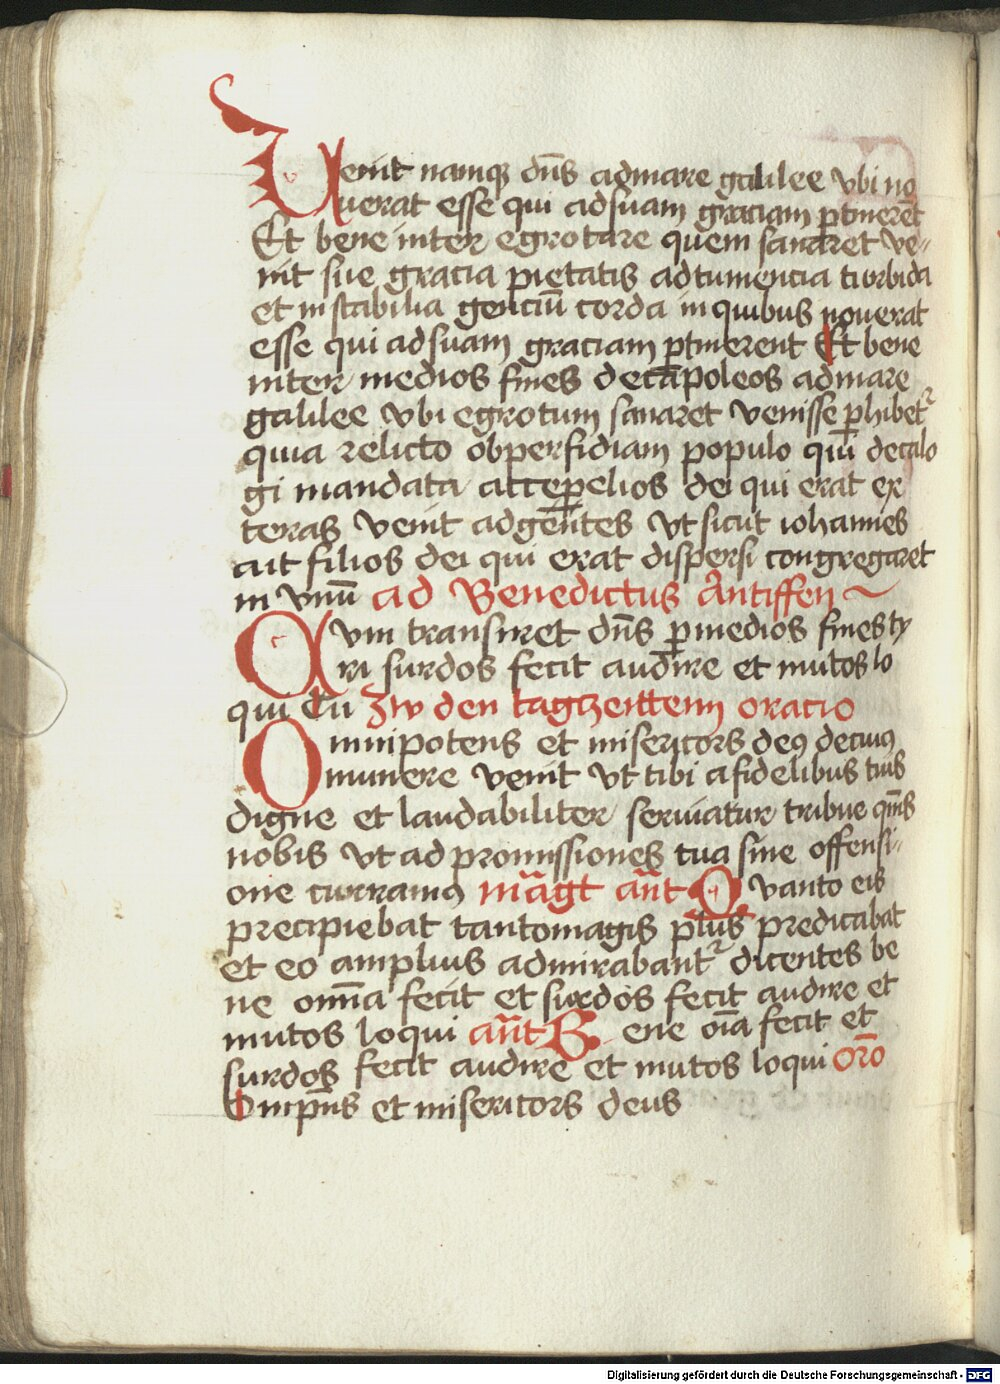 Uenit namqꝫ dn̄s admare galilee vbi no
uerat esse qui adsuam graciam ꝑtinerēt
Et bene inter egrotare quem sanaret ve⸗
nit sue gracia pietatis adtumencia turbida
et instabilia genciū corda in quibus nouerat
esse qui adsuam graciam ꝑtinerent Et bene
inter medios fines decapoleos admare
galilee vbi egrotum sanaret venisse ꝑhibetᷣ
quia relicto obperfidiam populo qui decalo
gi mandata dei qui erat ex
terras venit adgentes vt sicut iohannes
ait filios dei qui erat dispersi congregaret
in vnū ad Benedictus Antiffen
Cvm transiret dn̄s ꝑmedios fines ty
ri surdos fecit audire et mutos lo
qui Eu Zw den tagzeittenn oracio
Omnipotens et misericors deꝰ decuiꝰ
munere venit vt tibi afidelibus tuis
digne et laudabiliter seruiatur tribue qm̄s
nobis vt ad promissiones tua sine offensi⸗
one curramus māgt ān̄t Qvanto eis
precipiebat tantomagis plus predicabat
et eo amplius admirabantᷣ dicentes be
ne omn̄a fecit et surdos fecit audire et
mutos loqui ān̄t Bene oīa fecit et
surdos fecit audire et mutos loqui or̄o
Omp̄ns et misericors deus
Digitalisierung gefördert durch die Deutsche Forschungsgemeinschaft - DFG